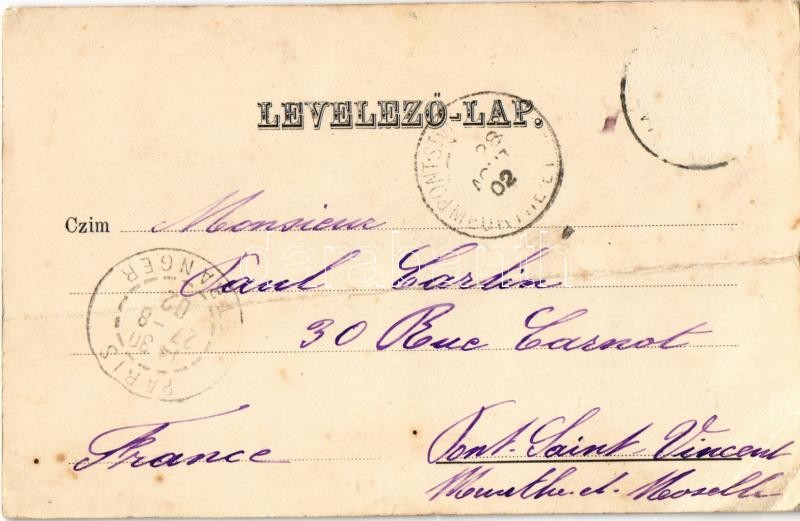 LEVELEZŐ-LAP.
PONT-ST-V
MEURTHE-ET
28
AOUT
02
Czim Monsieur
Paul Carlin
30 Rue Carnot
France
Pont-Saint Vincent
Meurthe-et-Moselle
PARIS
ETRANGER
14 30
27 -8
02